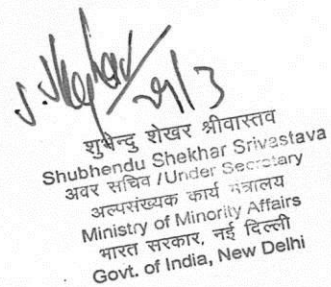 S. Shekhar
29/3
शुभेन्दु शेखर श्रीवास्तव
Shubhendu Shekhar Srivastava
अवर सचिव /Under Secretary
अल्पसंख्यक कार्य मंत्रालय
Ministry of Minority Affairs
भारत सरकार, नई दिल्ली
Govt. of India, New Delhi